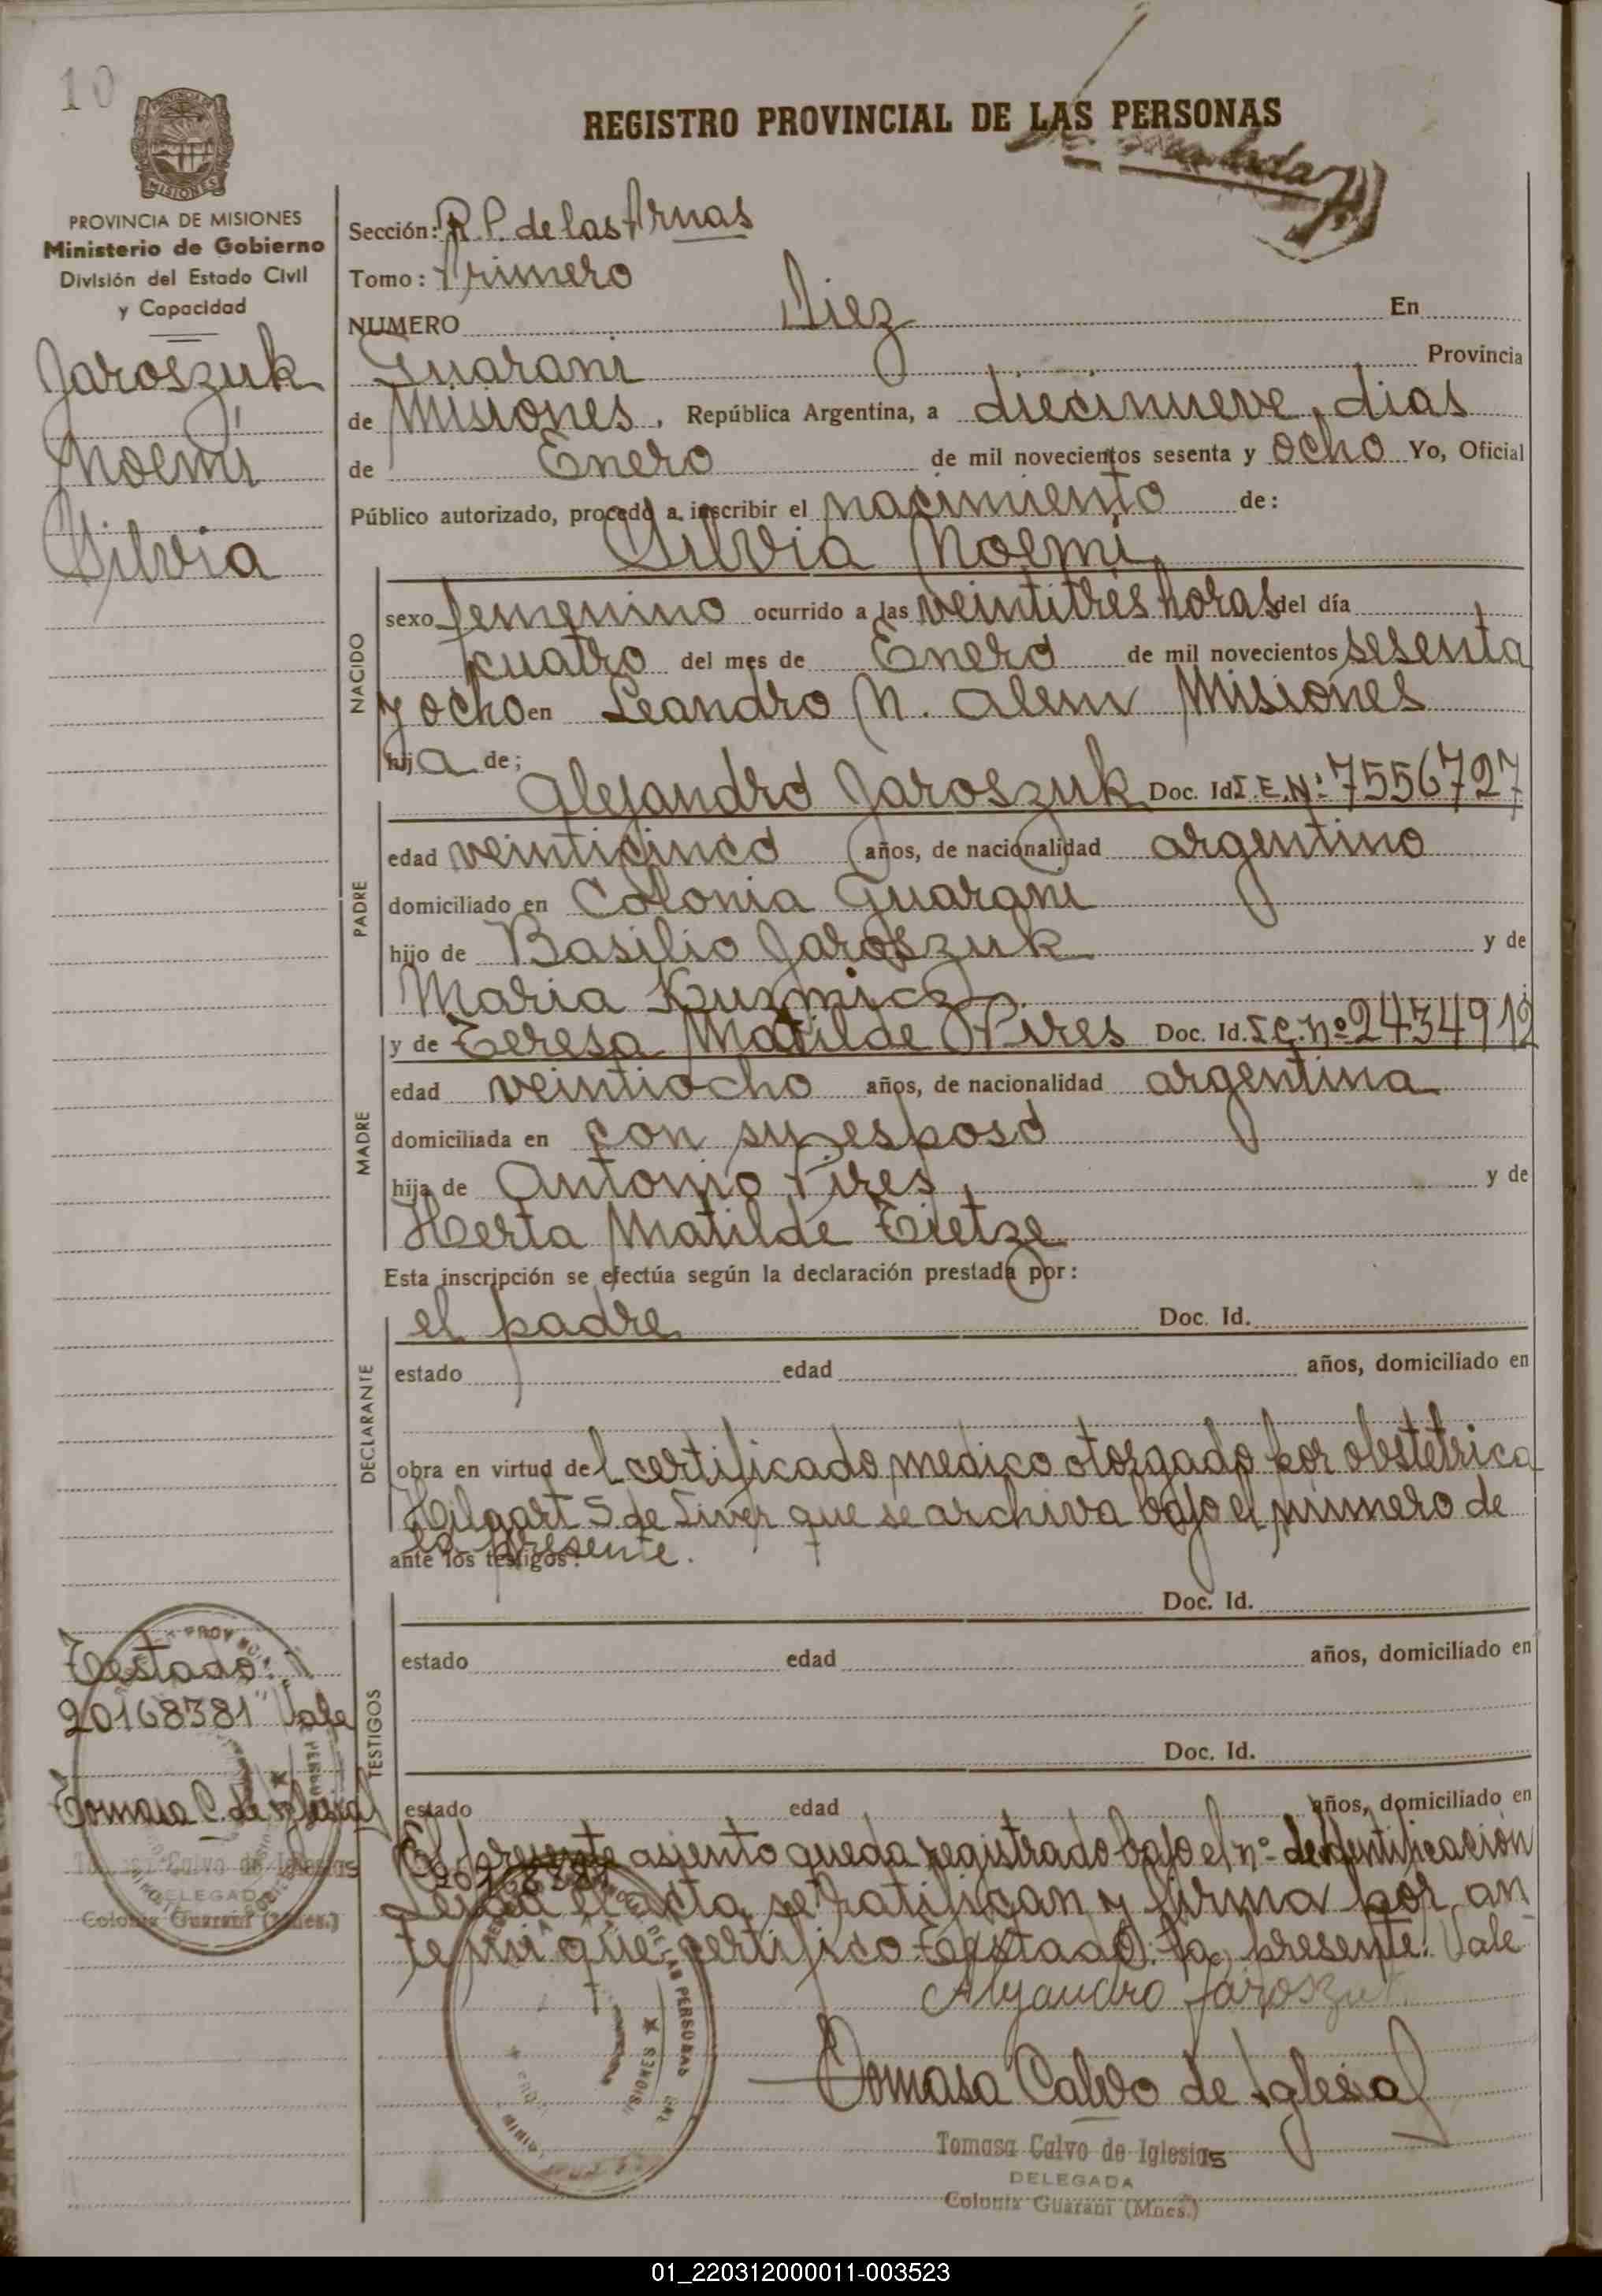 10
REGISTRO PROVINCIAL DE LAS PERSONAS
MISIONES
PROVINCIA DE MISIONES
Ministerio de Gobierno
División del Estado Civil
y Capacidad
Jaroszuk
Noemí
Silvia
Sección: R.P. de las Arnas
Tomo: Primero
NUMERO Diez En
Guarani Provincia
de Misiones, República Argentina, a diecinueve dias
de Enero de mil novecientos sesenta y ocho Yo, Oficial
Público autorizado, procedo a inscribir el nacimiento de:
Silvia Noemi
NACIDO
sexo femenino ocurrido a las veintitres horas del día
cuatro del mes de Enero de mil novecientos sesenta
y ocho en Leandro N. Alem Misiones
hija de:
PADRE
Alejandro Jaroszuk Doc. Id. L.E.Nº 7556727
edad veinticinco años, de nacionalidad argentino
domiciliado en Colonia Guarani
hijo de Basilio Jaroszuk y de
Maria Kuzmicz
MADRE
y de Teresa Matilde Pires Doc. Id. L.C.nº 2434912
edad veintiocho años, de nacionalidad argentina
domiciliada en con su esposo
hija de Antonio Pires y de
Herta Matilde Tietze
Esta inscripción se efectúa según la declaración prestada por:
DECLARANTE
el padre Doc. Id.
estado edad años, domiciliado en
obra en virtud del certificado medico otorgado por obstetrica
Hilgart S. de Siver que se archiva bajo el número de
la presente.
ante los testigos:
TESTIGOS
Doc. Id.
estado edad años, domiciliado en
Doc. Id.
estado edad años, domiciliado en
El presente asiento queda registrado bajo el nº de identificación
20168381
Leida el acta se ratifican y firma por an
te mi que certifico Testado: la presente. Vale
Alejandro Jaroszuk
Tomasa Calvo de Iglesias
Tomasa Calvo de Iglesias
DELEGADA
Colonia Guaraní (Mnes.)
Testado:
20168381" Vale
Tomasa C. de Iglesias
Tomasa Calvo de Iglesias
DELEGADA
Colonia Guaraní (Mnes.)
01_220312000011-003523